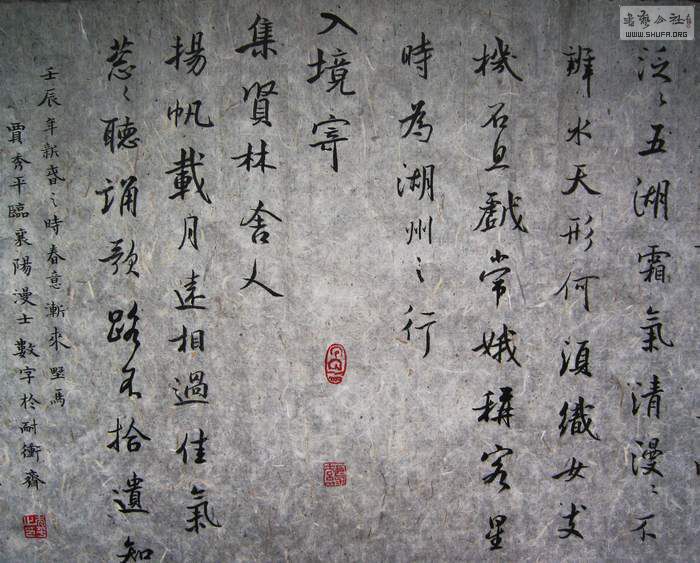 泛〻五湖霜氣清漫〻不
辨水天形何須織女支
機石且戲常娥稱客星
時為湖州之行
入境寄
集賢林舍人
揚帆載月遠相過佳氣
蔥〻聽誦歌路不拾遺知
壬辰年新春之時春意漸來
賈秀平臨襄陽漫士數字於耐衝齋
書藝公社
WWW.SHUFA.ORG